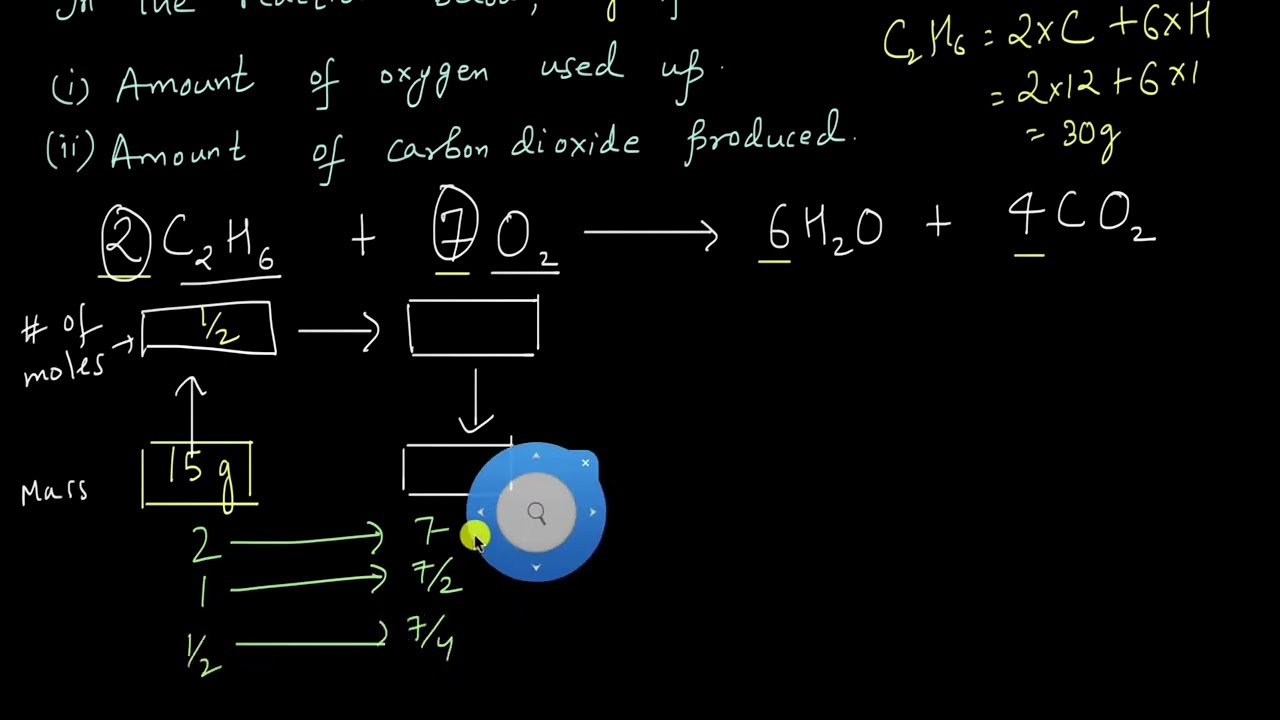 In the reaction below, if
(i) Amount of oxygen used up.
(ii) Amount of carbon dioxide produced.
C₂H₆ = 2×C + 6×H
= 2×12 + 6×1
= 30g
2 C₂H₆ + 7 O₂ → 6H₂O + 4CO₂
# of moles → 1/2 →
Mass 15 g
2 → 7
1 → 7/2
1/2 → 7/4